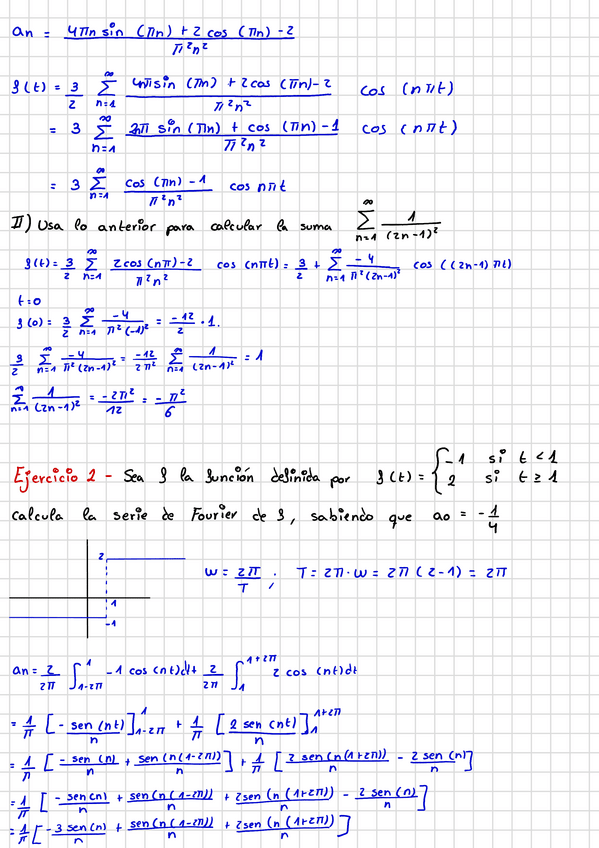 an = 4πn sin (πn) + 2 cos (πn) - 2 / π²n²
f(t) = 3/2 ∑_{n=1}^{∞} 4nπ sin (πn) + 2 cos (πn) - 2 / π²n² cos (nπt)
= 3 ∑_{n=1}^{∞} 2nπ sin (πn) + cos (πn) - 1 / π²n² cos (nπt)
= 3 ∑_{n=1}^{∞} cos (πn) - 1 / π²n² cos nπt
II) Usa lo anterior para calcular la suma ∑_{n=1}^{∞} 1 / (2n-1)²
f(t) = 3/2 ∑_{n=1}^{∞} 2 cos (nπ) - 2 / π²n² cos (nπt) = 3/2 + ∑_{n=1}^{∞} -4 / π²(2n-1)² cos ((2n-1) πt)
t=0
f(0) = 3/2 ∑_{n=1}^{∞} -4 / π²(-1)² = -12/2 · 1.
3/2 ∑_{n=1}^{∞} -4 / π²(2n-1)² = -12/2π² ∑_{n=1}^{∞} 1 / (2n-1)² = 1
∑_{n=1}^{∞} 1 / (2n-1)² = -2π²/12 = -π²/6
Ejercicio 2 - Sea f la función definida por f(t) = { -1 si t < 1
2 si t ≥ 1
calcula la serie de Fourier de f, sabiendo que ao = -1/4
2
1
-1
w = 2π/T ; T = 2π · w = 2π (2-1) = 2π
an = 2/2π ∫_{1-2π}^{1} -1 cos (nt) dt + 2/2π ∫_{1}^{1+2π} 2 cos (nt) dt
= 1/π [ - sen (nt) / n ]_{1-2π}^{1} + 1/π [ 2 sen (nt) / n ]_{1}^{1+2π}
= 1/π [ - sen (n) / n + sen (n(1-2π)) / n ] + 1/π [ 2 sen (n(1+2π)) / n - 2 sen (n) / n ]
= 1/π [ - sen (n) / n + sen (n (1-2π)) / n + 2 sen (n (1+2π)) / n - 2 sen (n) / n ]
= 1/π [ -3 sen (n) / n + sen (n (1-2π)) / n + 2 sen (n (1+2π)) / n ]